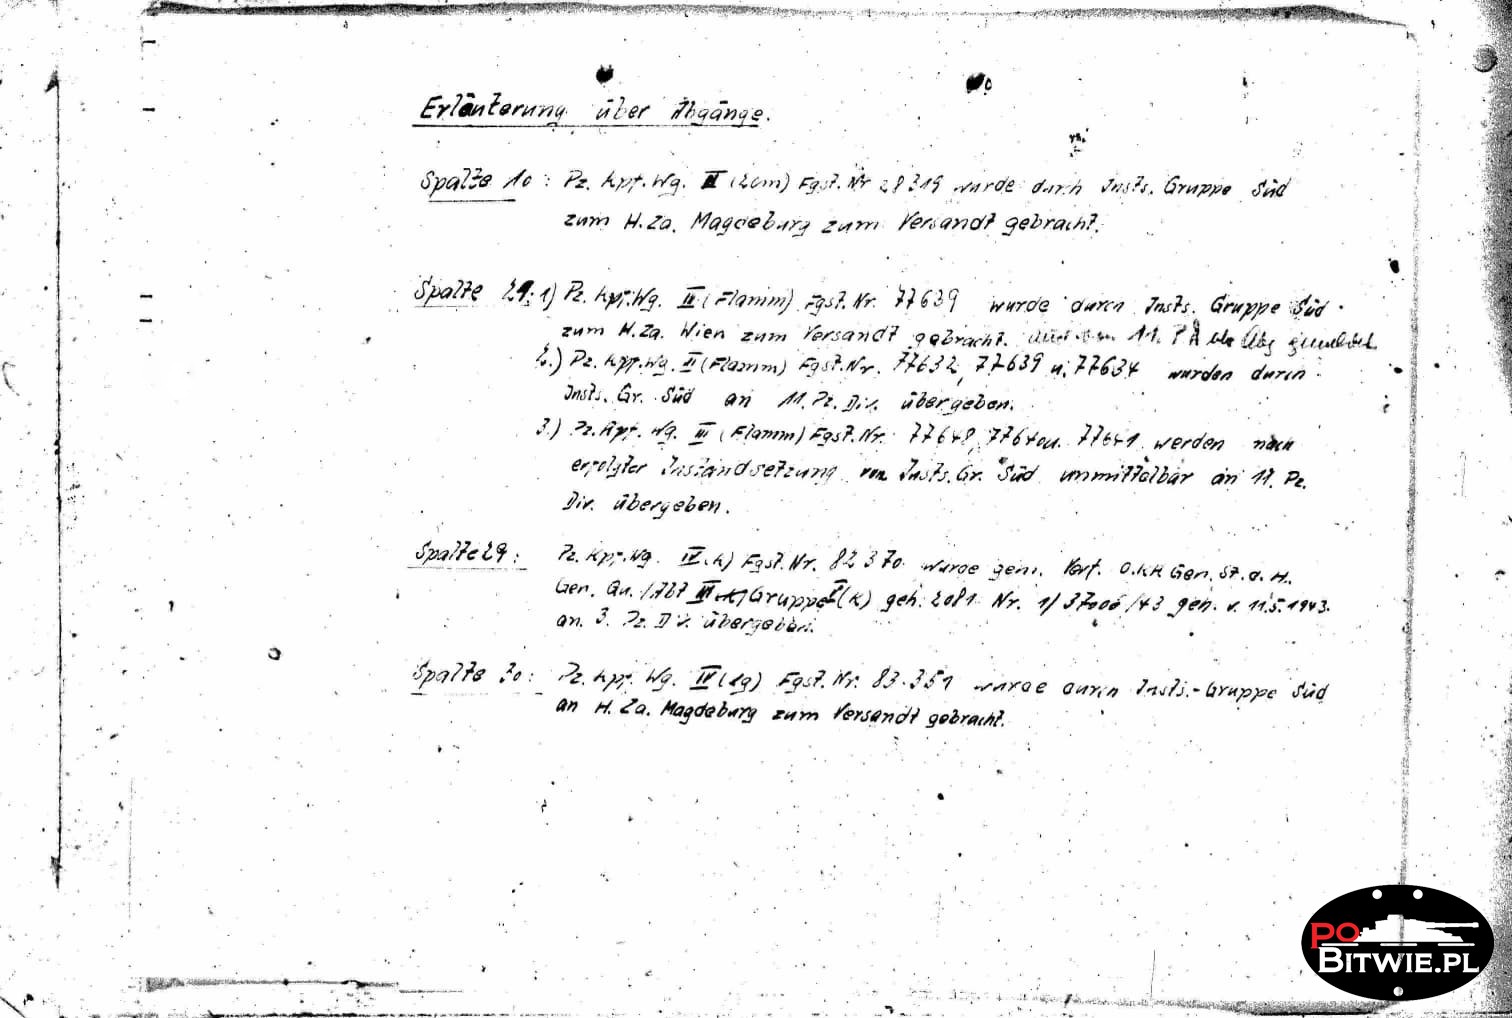 Erläuterung über Abgänge.
Spalte 10: Pz. Kpf. Wg. II (2cm) Fgst. Nr 28319 wurde durch Insts. Gruppe Süd
zum H. Za. Magdeburg zum Versandt gebracht.
Spalte 1) Pz. Kpf. Wg. (Flamm) Fgst. Nr. 77639 wurde durch Insts. Gruppe Süd
zum H. Za. Wien zum Versandt gebracht. 11.
2.) Pz. Kpf. Wg. (Flamm) Fgst. Nr. 77632, 77639 u. 77634 wurden durch
Insts. Gr. Süd an 11. Pz. Div. übergeben.
3.) Pz. Kpf. Wg. III (Flamm) Fgst. Nr. 77648, 77640 u. 77641 werden nach
erfolgter Instandsetzung von Insts. Gr. Süd unmittelbar an 11. Pz.
Div. übergeben.
Spalte 29: Pz. Kpf. Wg. IV Fgst. Nr. 82370 wurde gem. O.K.H. Gen. St. d. H.
Gen. Qu. / Abt III Gruppe I (K) geh. 2081 Nr. 1/37006/43 geh. v. 11.5.1943.
an 3. Pz. Div. übergeben.
Spalte 30: Pz. Kpf. Wg. IV (lg) Fgst. Nr. 83.351 wurde durch Insts.-Gruppe Süd
an H. Za. Magdeburg zum Versandt gebracht.
PO
BITWIE.PL